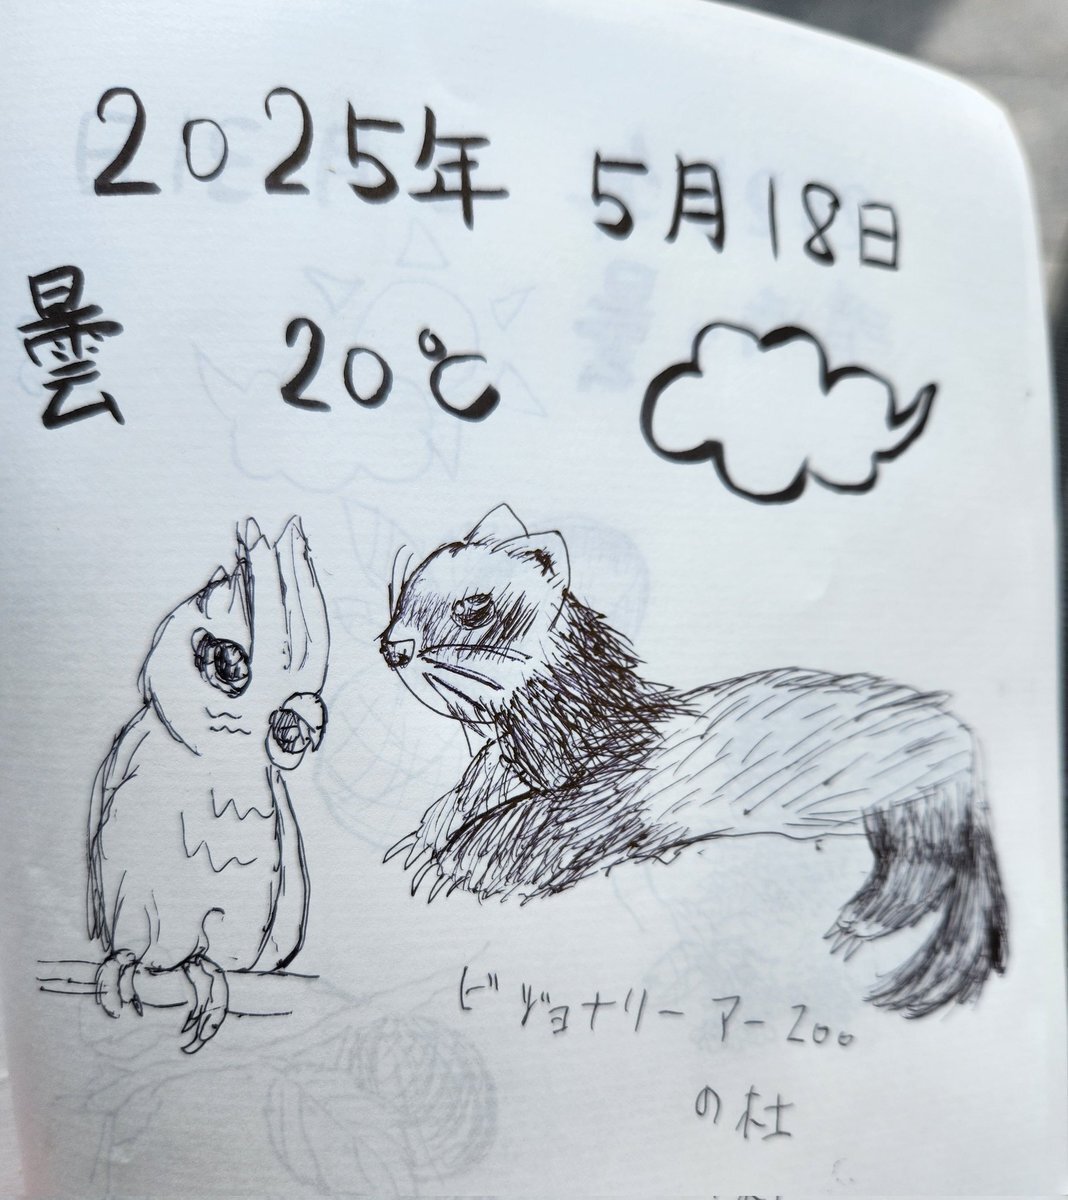 2025年 5月18日
曇 20℃
ビジョナリーアーZoo
の杜